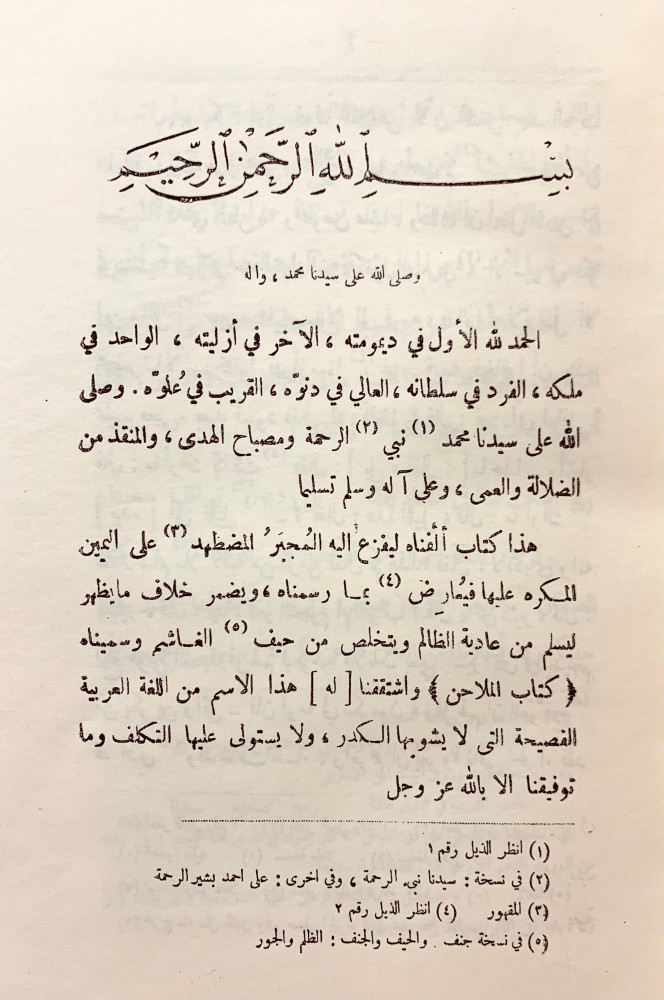 بِسْمِ اللهِ الرَّحْمٰنِ الرَّحِيمِ
وصلى الله على سيدنا محمد ، واله
الحمد لله الأول في ديمومته ، الآخر في أزليته ، الواحد في
ملكه ، الفرد في سلطانه ، العالي في دنوّه ، القريب في عُلوّه . وصلى
الله على سيدنا محمد (١) نبي (٢) الرحمة ومصباح الهدى ، والمنقذ من
الضلالة والعمى ، وعلى آله وسلم تسليما
هذا كتاب ألّفناه ليفزع اليه المُجبَرُ المضطهد (٣) على اليمين
المكره عليها فيُعارِض (٤) بما رسمناه ، ويضمر خلاف ما يظهر
ليسلم من عادية الظالم ويتخلص من حيف (٥) الغاشم وسميناه
﴿ كتاب الملاحن ﴾ واشتققنا [ له ] هذا الاسم من اللغة العربية
الفصيحة التى لا يشوبها الكدر ، ولا يستولى عليها التكلف وما
توفيقنا الا بالله عز وجل
(١) انظر الذيل رقم ١
(٢) في نسخة : سيدنا نبي الرحمة ، وفي اخرى : على احمد بشير الرحمة
(٣) المقهور (٤) انظر الذيل رقم ٢
(٥) في نسخة جنف . والحيف والجنف : الظلم والجور